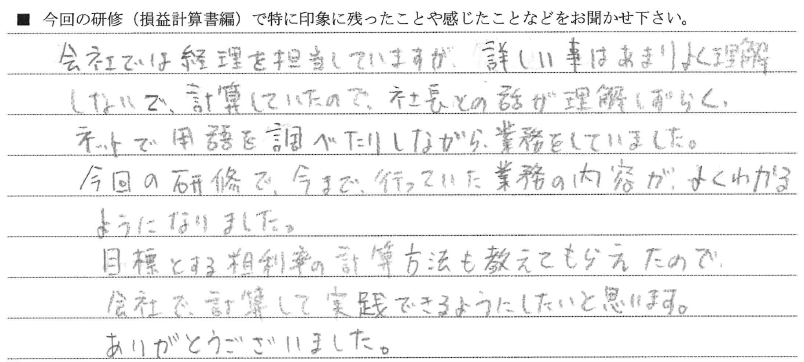 ■ 今回の研修（損益計算書編）で特に印象に残ったことや感じたことなどをお聞かせ下さい。
会社では経理を担当していますが、詳しい事はあまりよく理解
しないで、計算していたので、社長との話が理解しずらく、
ネットで用語を調べたりしながら、業務をしていました。
今回の研修で、今まで、行っていた業務の内容が、よくわかる
ようになりました。
目標とする粗利率の計算方法も教えてもらえたので、
会社で、計算して実践できるようにしたいと思います。
ありがとうございました。